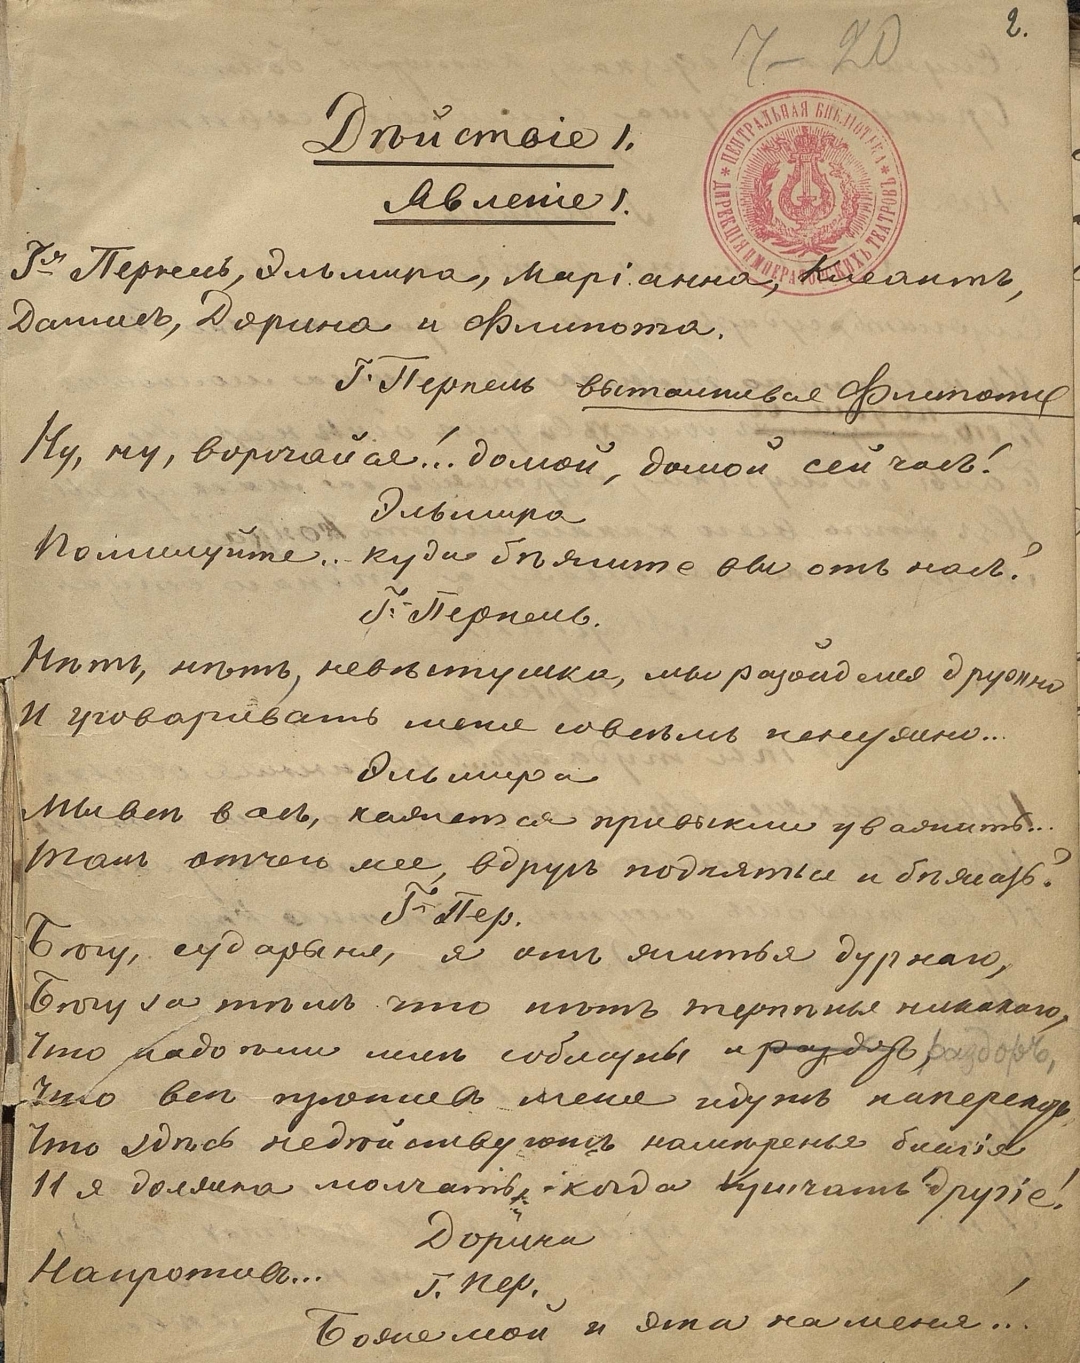 2.
7–20
ЦЕНТРАЛЬНАЯ БИБЛІОТЕКА * ДИРЕКЦІЯ ИМПЕРАТОРСКИХЪ ТЕАТРОВЪ *
Дѣйствіе 1.
Явленіе 1.
Г-жа Пернель, Эльмира, Маріанна, Клеантъ,
Дамисъ, Дорина и Флипота.
Г. Пернель выталкивая Флипоту
Ну, ну, ворочайся!.. домой, домой сейчасъ!
Эльмира
Помилуйте... куда бѣжите вы отъ насъ?
Г. Пернель.
Нѣтъ, нѣтъ, невѣстушка, мы разойдемся дружно
И уговаривать меня совсѣмъ ненужно...
Эльмира
Мы всѣ васъ, кажется привыкли уважить...
Такъ отчего же, вдругъ подняться и бѣжать?
Г. Пер.
Бѣгу, сударыня, я отъ житья дурнаго,
Бѣгу за тѣмъ что нѣтъ терпѣнья никакаго,
Что надоѣли мнѣ соблазны и раздоръ, раздоръ,
Что всѣ противъ меня идутъ наперекоръ
Что здѣсь недѣйствуютъ намѣренья благія
И я должна молчать, когда кричатъ другіе!
Дорина
Напротивъ...
Г. Пер.
Боже мой и эта на меня!..